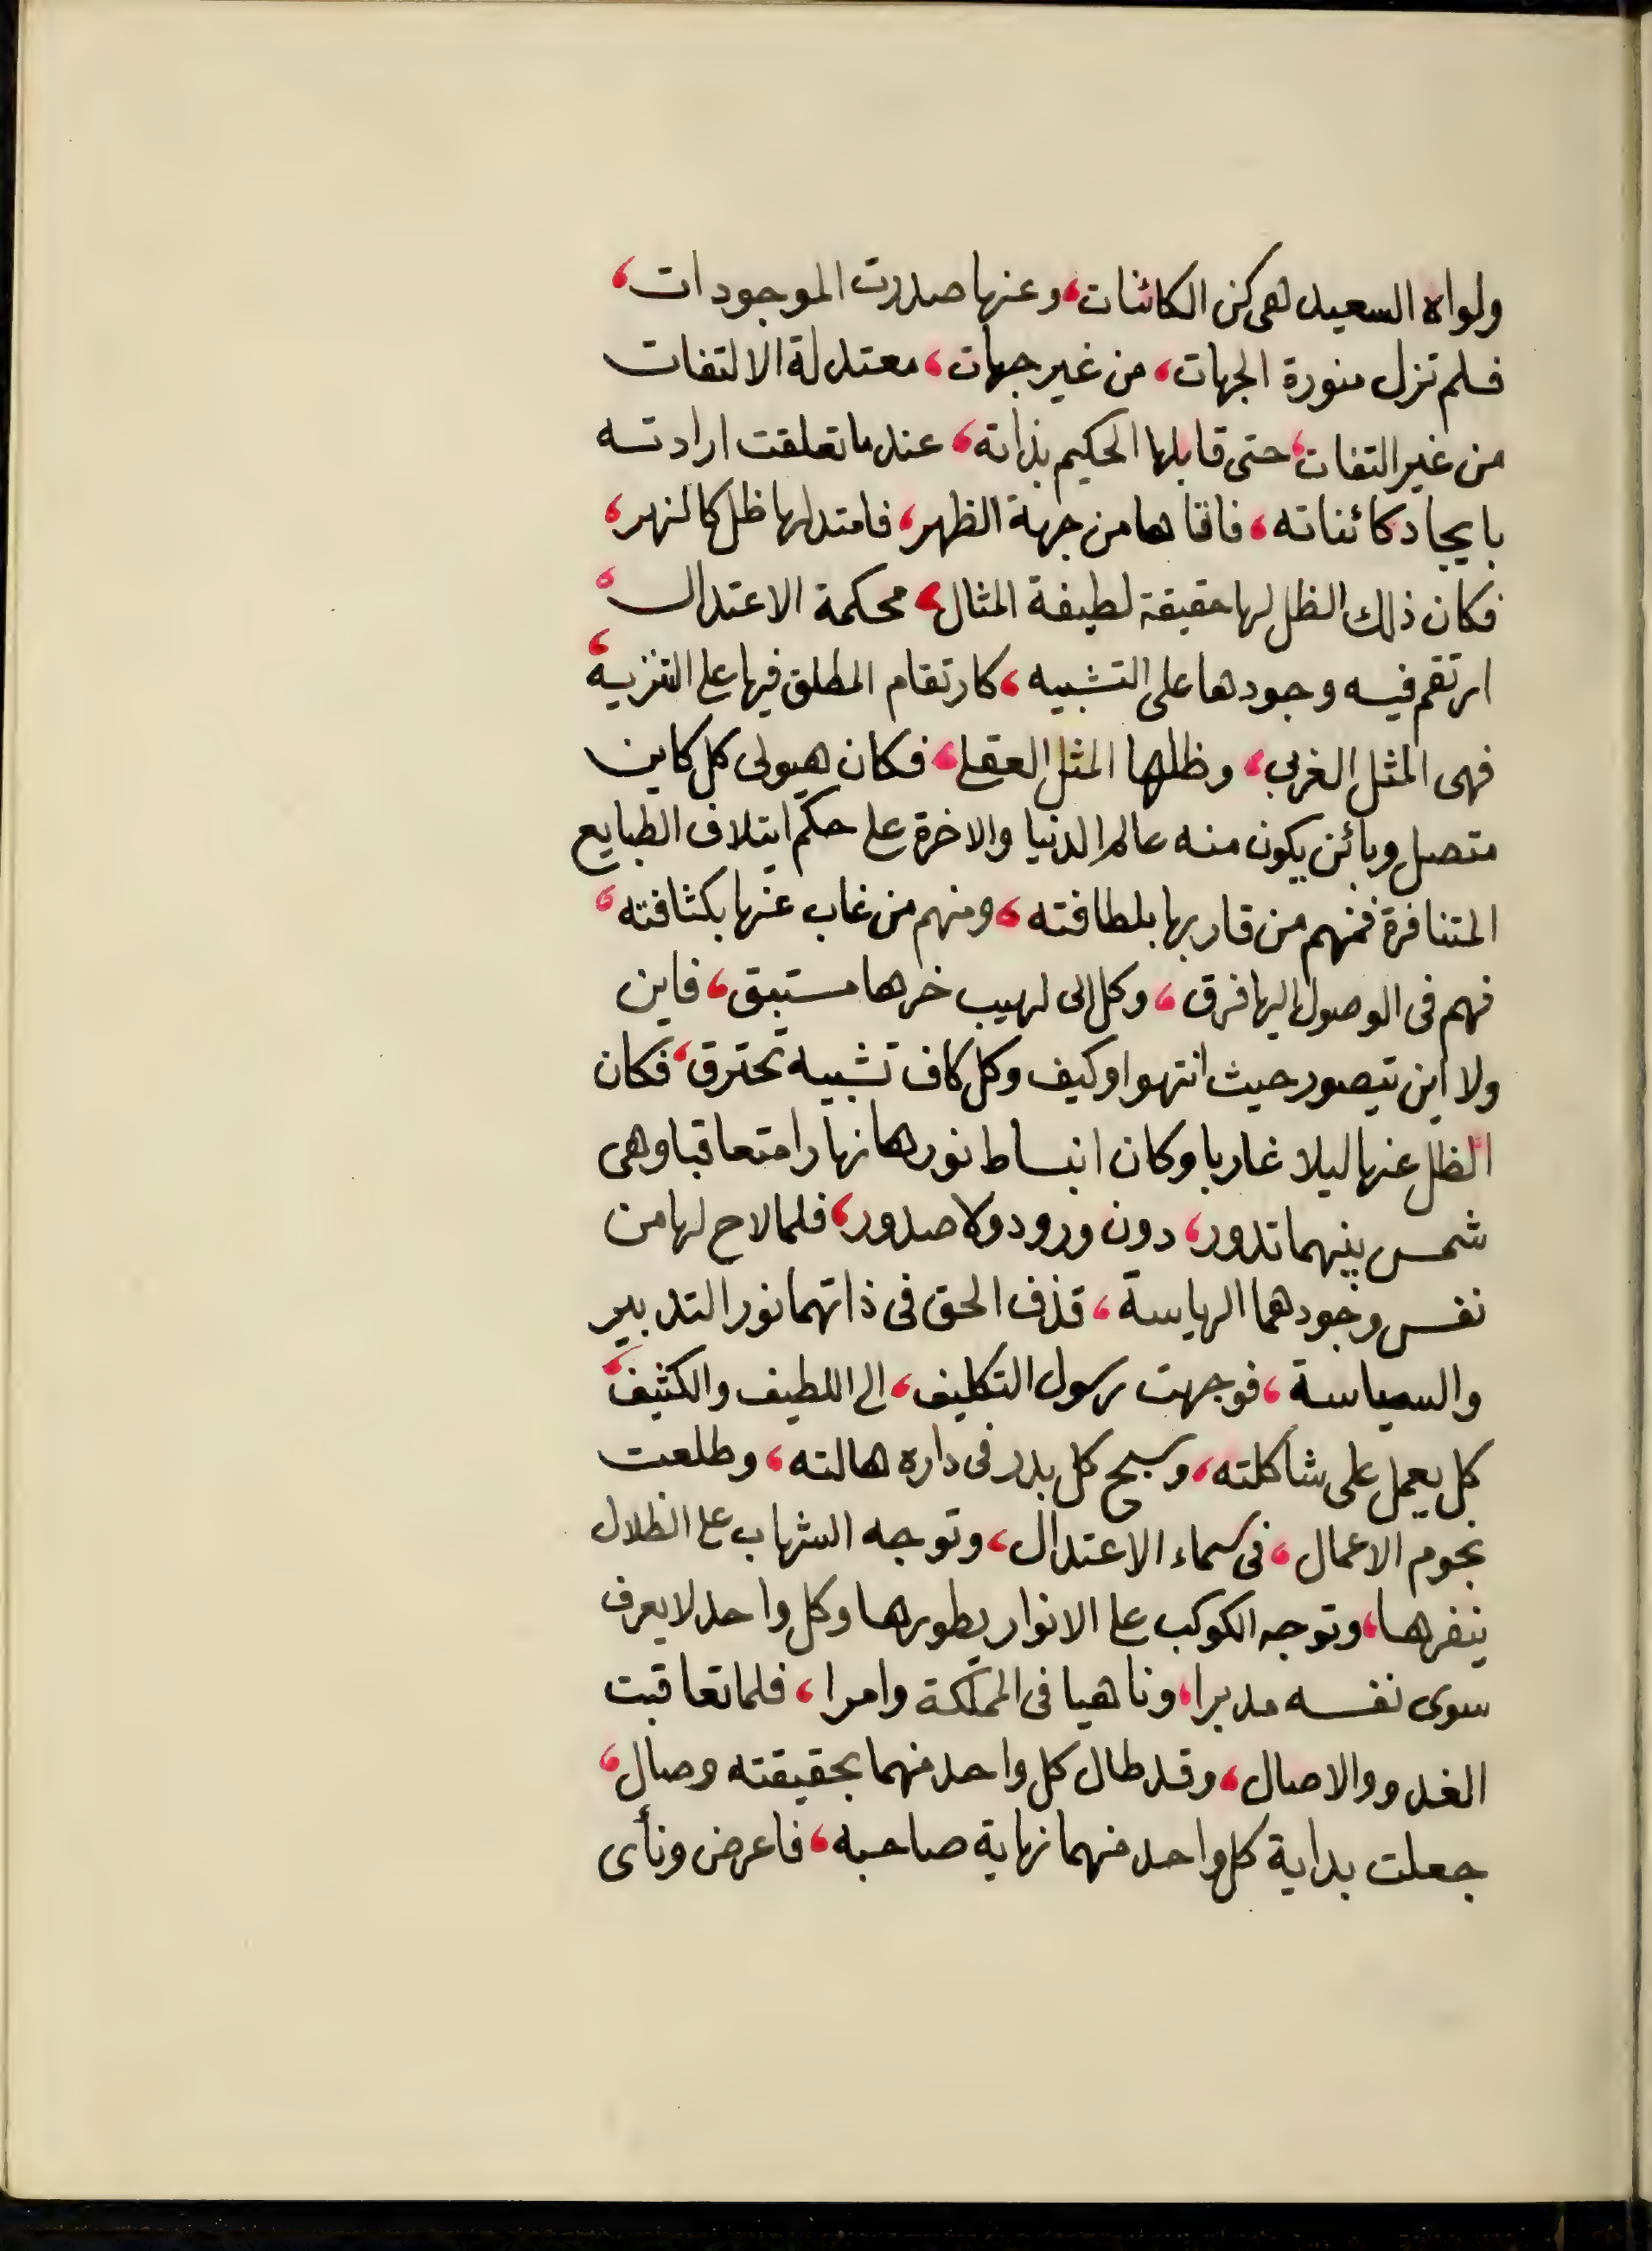 ولواه السعيد هى كن الكائنات، وعنها صدرت الموجودات،
فلم تزل منورة الجهات، من غير جهات، معتدلة الالتفات
من غير التفات، حتى قابلها الحكيم بذاته، عندما تعلقت ارادته
بايجاد كائناته، فاقاها من جهة الظهر، فامتد لها ظل كالنهر،
فكان ذلك الظل لها حقيقة لطيفة المثال، محكمة الاعتدال،
ارتقم فيه وجودها على التشبيه، كارتقام المطلق فيها على التنزيه،
فهى المثل الغربى، وظلها المثل العقلى، فكان هيولى كل كاين
متصل وبائن يكون منه عالم الدنيا والاخرة على حكم ايتلاف الطبايع
المتنافرة فمنهم من قاربها بلطافته، ومنهم من غاب عنها بكثافته،
فهم فى الوصول اليها فرق، وكل الى لهيب خرها مستبق، فاين
ولا اين تيصور حيث انتهوا وكيف وكل كاف تشبيه تحترق، فكان
الظل عنها ليلا غاربا وكان انبساط نورها نهارا متعاقبا وهى
شمس بينهما تدور، دون ورود ولا صدور، فلما لاح لها من
نفس وجودهما الرياسة، قذف الحق فى ذاتهما نور التدبير
والسياسة، فوجهت رسول التكليف، الى اللطيف والكثيف،
كل يعمل على شاكلته، وسبح كل بدر فى داره هالته، وطلعت
نجوم الاعمال، فى سماء الاعتدال، وتوجه الشهاب على الظلال
ينفرها، وتوجه الكوكب على الانوار يطورها وكل واحد لا يعرف
سوى نفسه مدبرا، وناهيا فى المملكة وامرا، فلما تعاقبت
الغدو والاصال، وقد طال كل واحد منهما بحقيقته وصال،
جعلت بداية كل واحد منهما نهاية صاحبه، فاعرض ونأى